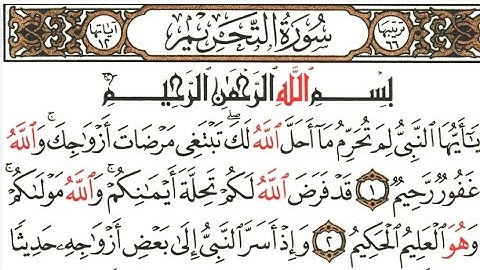 ترتيبها ٦٦ سُورَةُ التَّحْرِيمِ آياتها ١٢
بِسْمِ اللَّهِ الرَّحْمَٰنِ الرَّحِيمِ
يَٰٓأَيُّهَا النَّبِيُّ لِمَ تُحَرِّمُ مَآ أَحَلَّ اللَّهُ لَكَ ۖ تَبْتَغِى مَرْضَاتَ أَزْوَٰجِكَ ۚ وَاللَّهُ
غَفُورٌ رَّحِيمٌ ١ قَدْ فَرَضَ اللَّهُ لَكُمْ تَحِلَّةَ أَيْمَٰنِكُمْ ۚ وَاللَّهُ مَوْلَىٰكُمْ ۖ
وَهُوَ الْعَلِيمُ الْحَكِيمُ ٢ وَإِذْ أَسَرَّ النَّبِيُّ إِلَىٰ بَعْضِ أَزْوَٰجِهِۦ حَدِيثًا